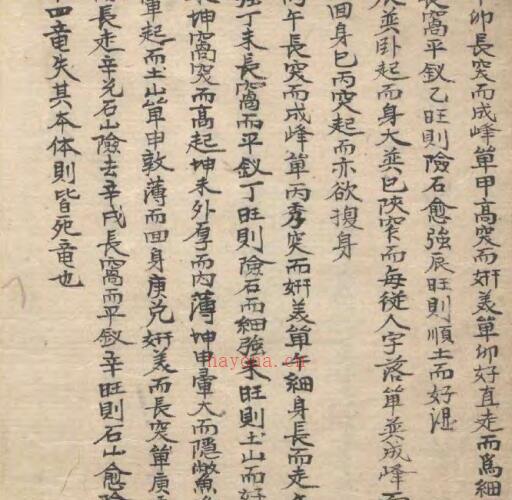 卯長突而成峰單甲高突而妍美單卯好直走而爲細
長窩平釵乙旺則險石愈強辰旺則順土而好湿
巽卦起而身大巽巳陜窄而每從人字落單巽成峰
回身巳丙突起而亦欲搜身
丙午長突而成峰單丙秀突而妍美單午細身長而走
丁未長窩而平釵丁旺則險石而細強未旺則土山而好
坤窩突而高起坤未外厚而内薄坤申軍大而隱
軍起而土山單申敦薄而回身庚兌妍美而長突單庚
長走辛兌石山險去辛戌長窩而平釵辛旺則石山愈險
四竜失其本体則皆死竜也
haygha.cn